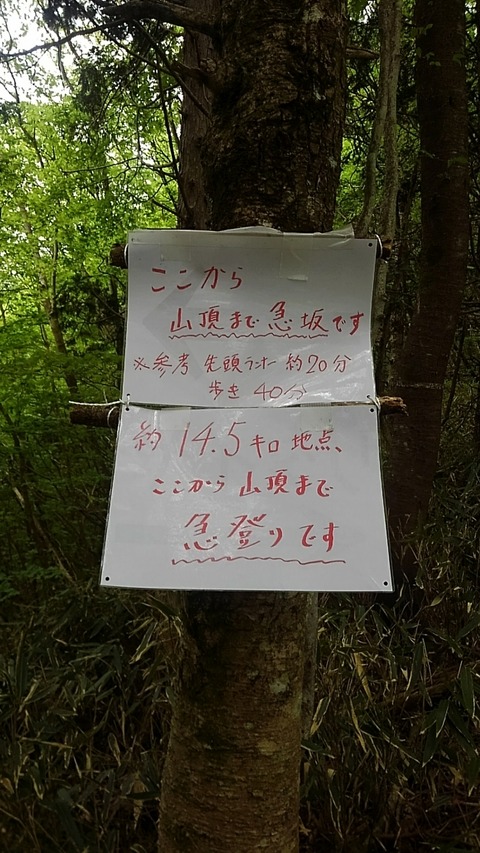 ここから
山頂まで急坂です
※参考 先頭ランナー 約20分
歩き 40分
約 14.5キロ地点、
ここから山頂まで
急登りです